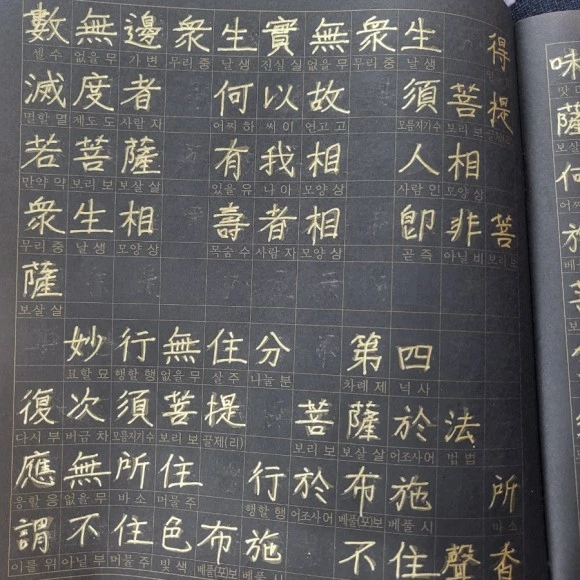 數無邊衆生實無衆生得
셀 수 없을 무 가 변 무리 중 날 생 진실 실 없을 무 무리 중 날 생
滅度者 何以故 須菩提
멸할 멸 제도 도 사람 자 어찌 하 써 이 연고 고 모름지기수 보리 보
若菩薩 有我相 人相
만약 약 보리 보 보살 살 있을 유 나 아 모양 상 사람 인 모양 상
衆生相 壽者相 卽非菩
무리 중 날 생 모양 상 목숨 수 사람 자 모양 상 곧 즉 아닐 비 보리 보
薩
보살 살
妙行無住分 第四
묘할 묘 행할 행 없을 무 살 주 나눌 분 차례 제 넉 사
復次須菩提 菩薩於法
다시 부 버금 차 모름지기수 보리 보 끌제(리) 보리 보 보살 살 어조사어 법 법
應無所住 行於布施 所
응할 응 없을 무 바 소 머물 주 행할 행 어조사어 베풀(포)보 베풀 시 바 소
謂不住色布施 不住聲香
이를 위 아닐 부 머물 주 빛 색 베풀(포)보 베풀 시
味
薩
何
於